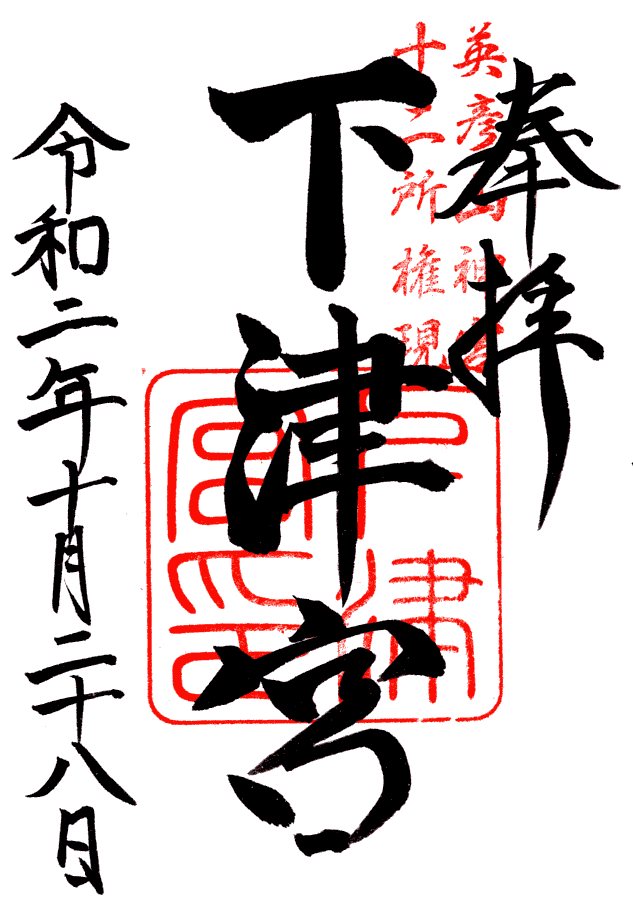 奉拝
英彦山神宮
十二所権現
下津宮
下津宮印
令和二年十月二十八日